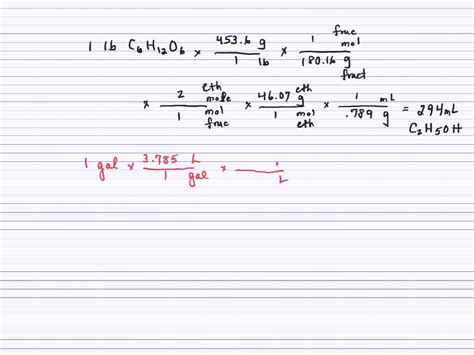 1 lb C6H12O6 × 453.6 g / 1 lb × 1 fruc mol / 180.16 g fruct
× 2 eth mole / 1 mol fruc × 46.07 g eth / 1 mol eth × 1 mL / .789 g = 294 mL C2H5OH
1 gal × 3.785 L / 1 gal × / L